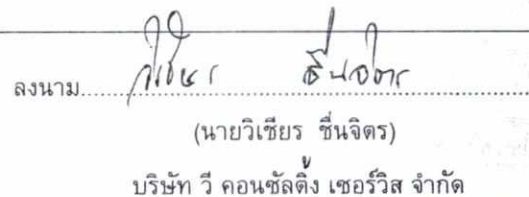 ลงนาม..........วิเชียร ชื่นจิตร..........
(นายวิเชียร ชื่นจิตร)
บริษัท วี คอนซัลติ้ง เซอร์วิส จำกัด